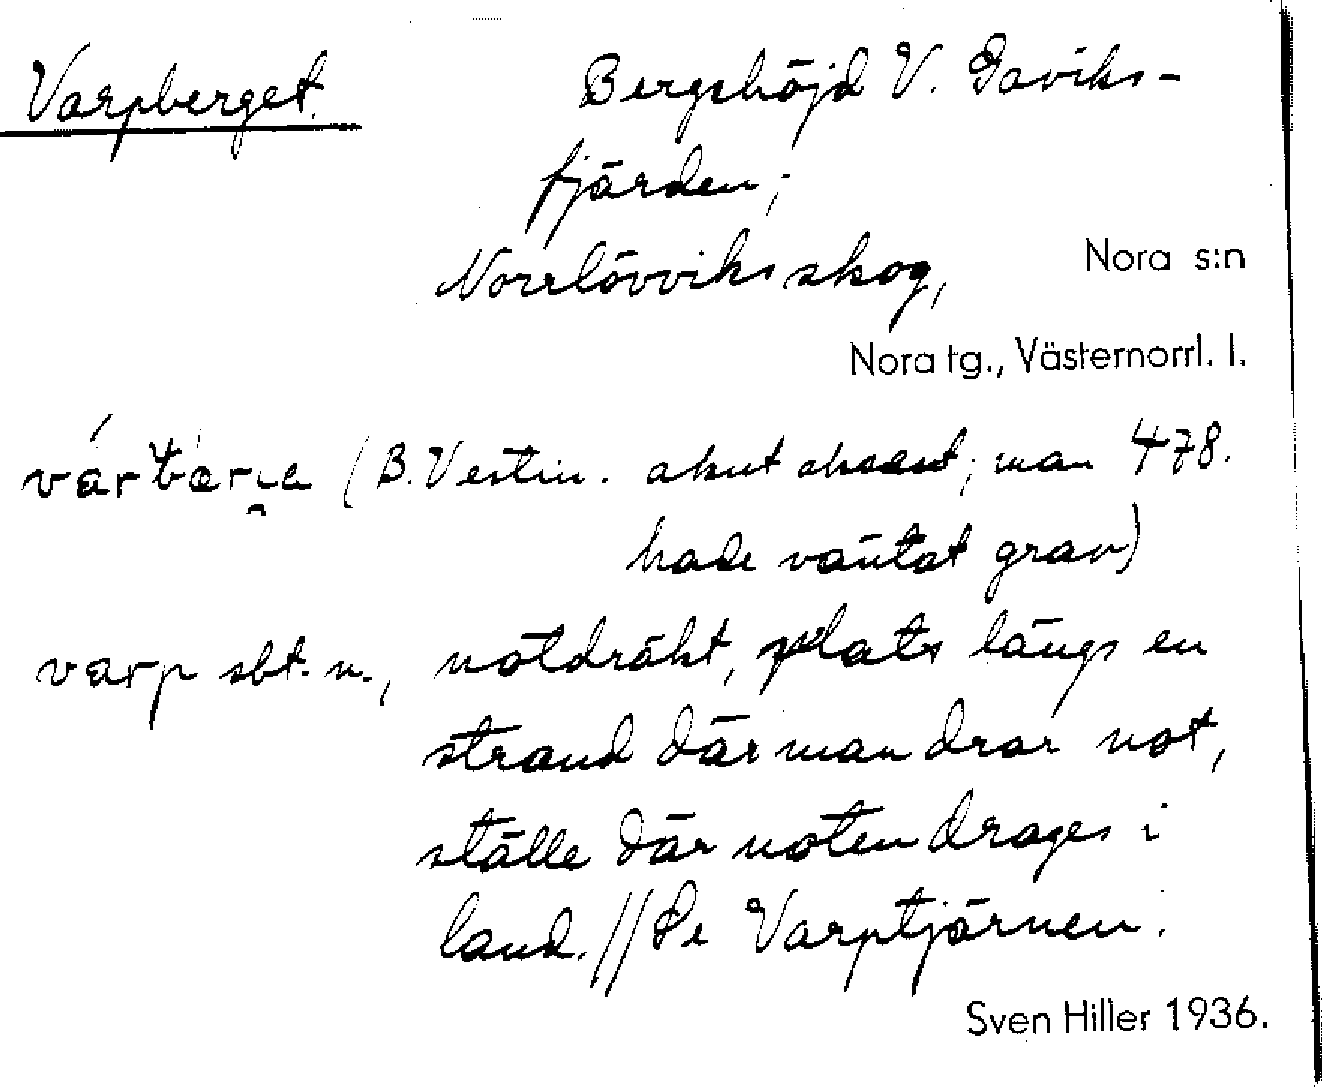 Varpberget. Bergshöjd V. Gaviks-
fjärden;
Norrlövviks skog, Nora s:n
Nora tg., Västernorrl. l.
(B. Vestin. akut aksent; man 478.
hade väntat grav)
varp sbt. n., notdräkt, plats längs en
strand där man drar not,
ställe där noten drages i
land. // Se Varptjärnen.
Sven Hiller 1936.